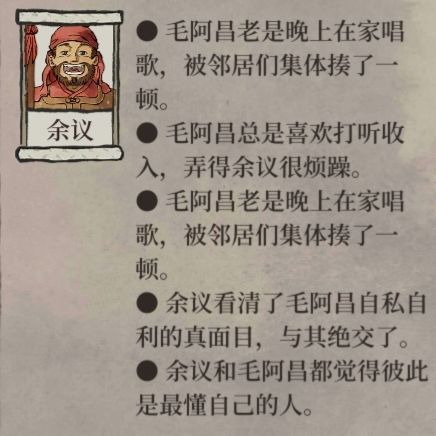 余议
● 毛阿昌老是晚上在家唱
歌，被邻居们集体揍了一
顿。
● 毛阿昌总是喜欢打听收
入，弄得余议很烦躁。
● 毛阿昌老是晚上在家唱
歌，被邻居们集体揍了一
顿。
● 余议看清了毛阿昌自私自
利的真面目，与其绝交了。
● 余议和毛阿昌都觉得彼此
是最懂自己的人。